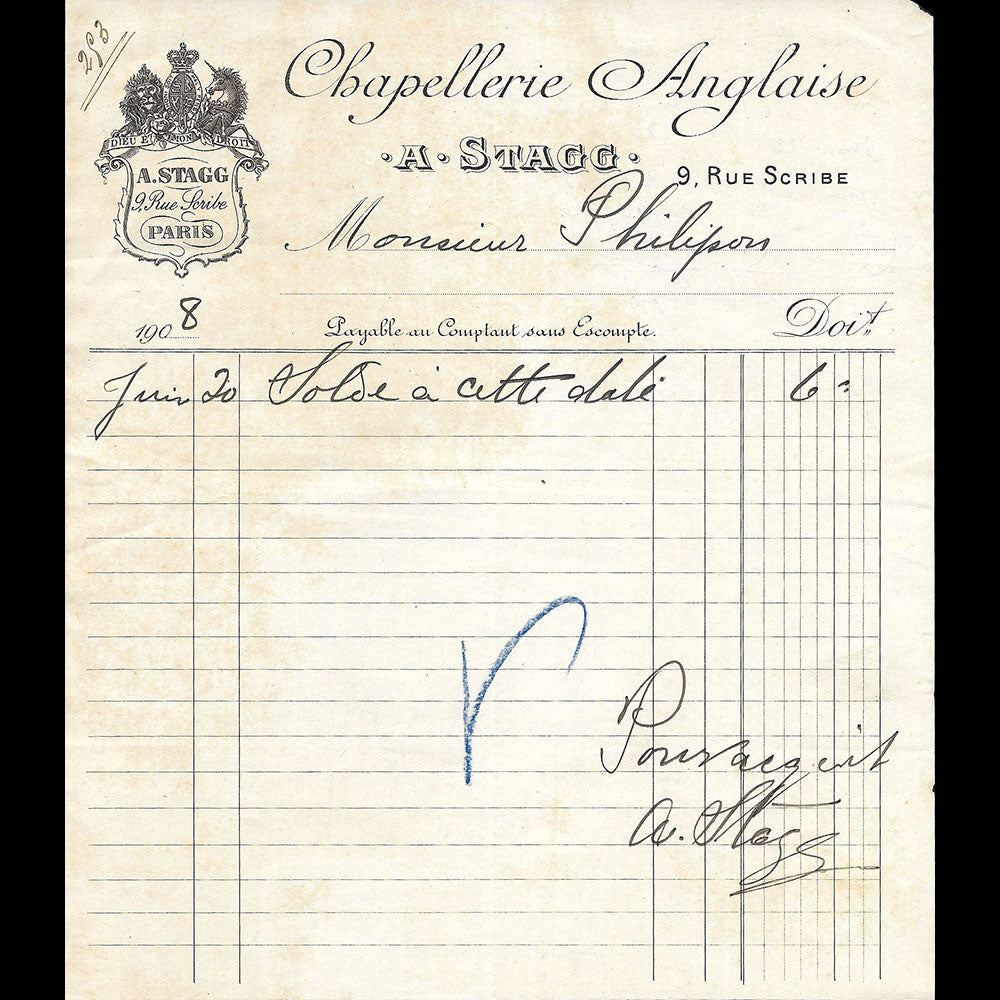 253
Chapellerie Anglaise
DIEU ET MON DROIT
A. STAGG
9, Rue Scribe
PARIS
· A · STAGG ·
9, RUE SCRIBE
Monsieur Philipson
1908
Payable au Comptant sans Escompte.
Doit
Juin 20 Solde à cette date 6 "
Pour acquit
A. Stagg